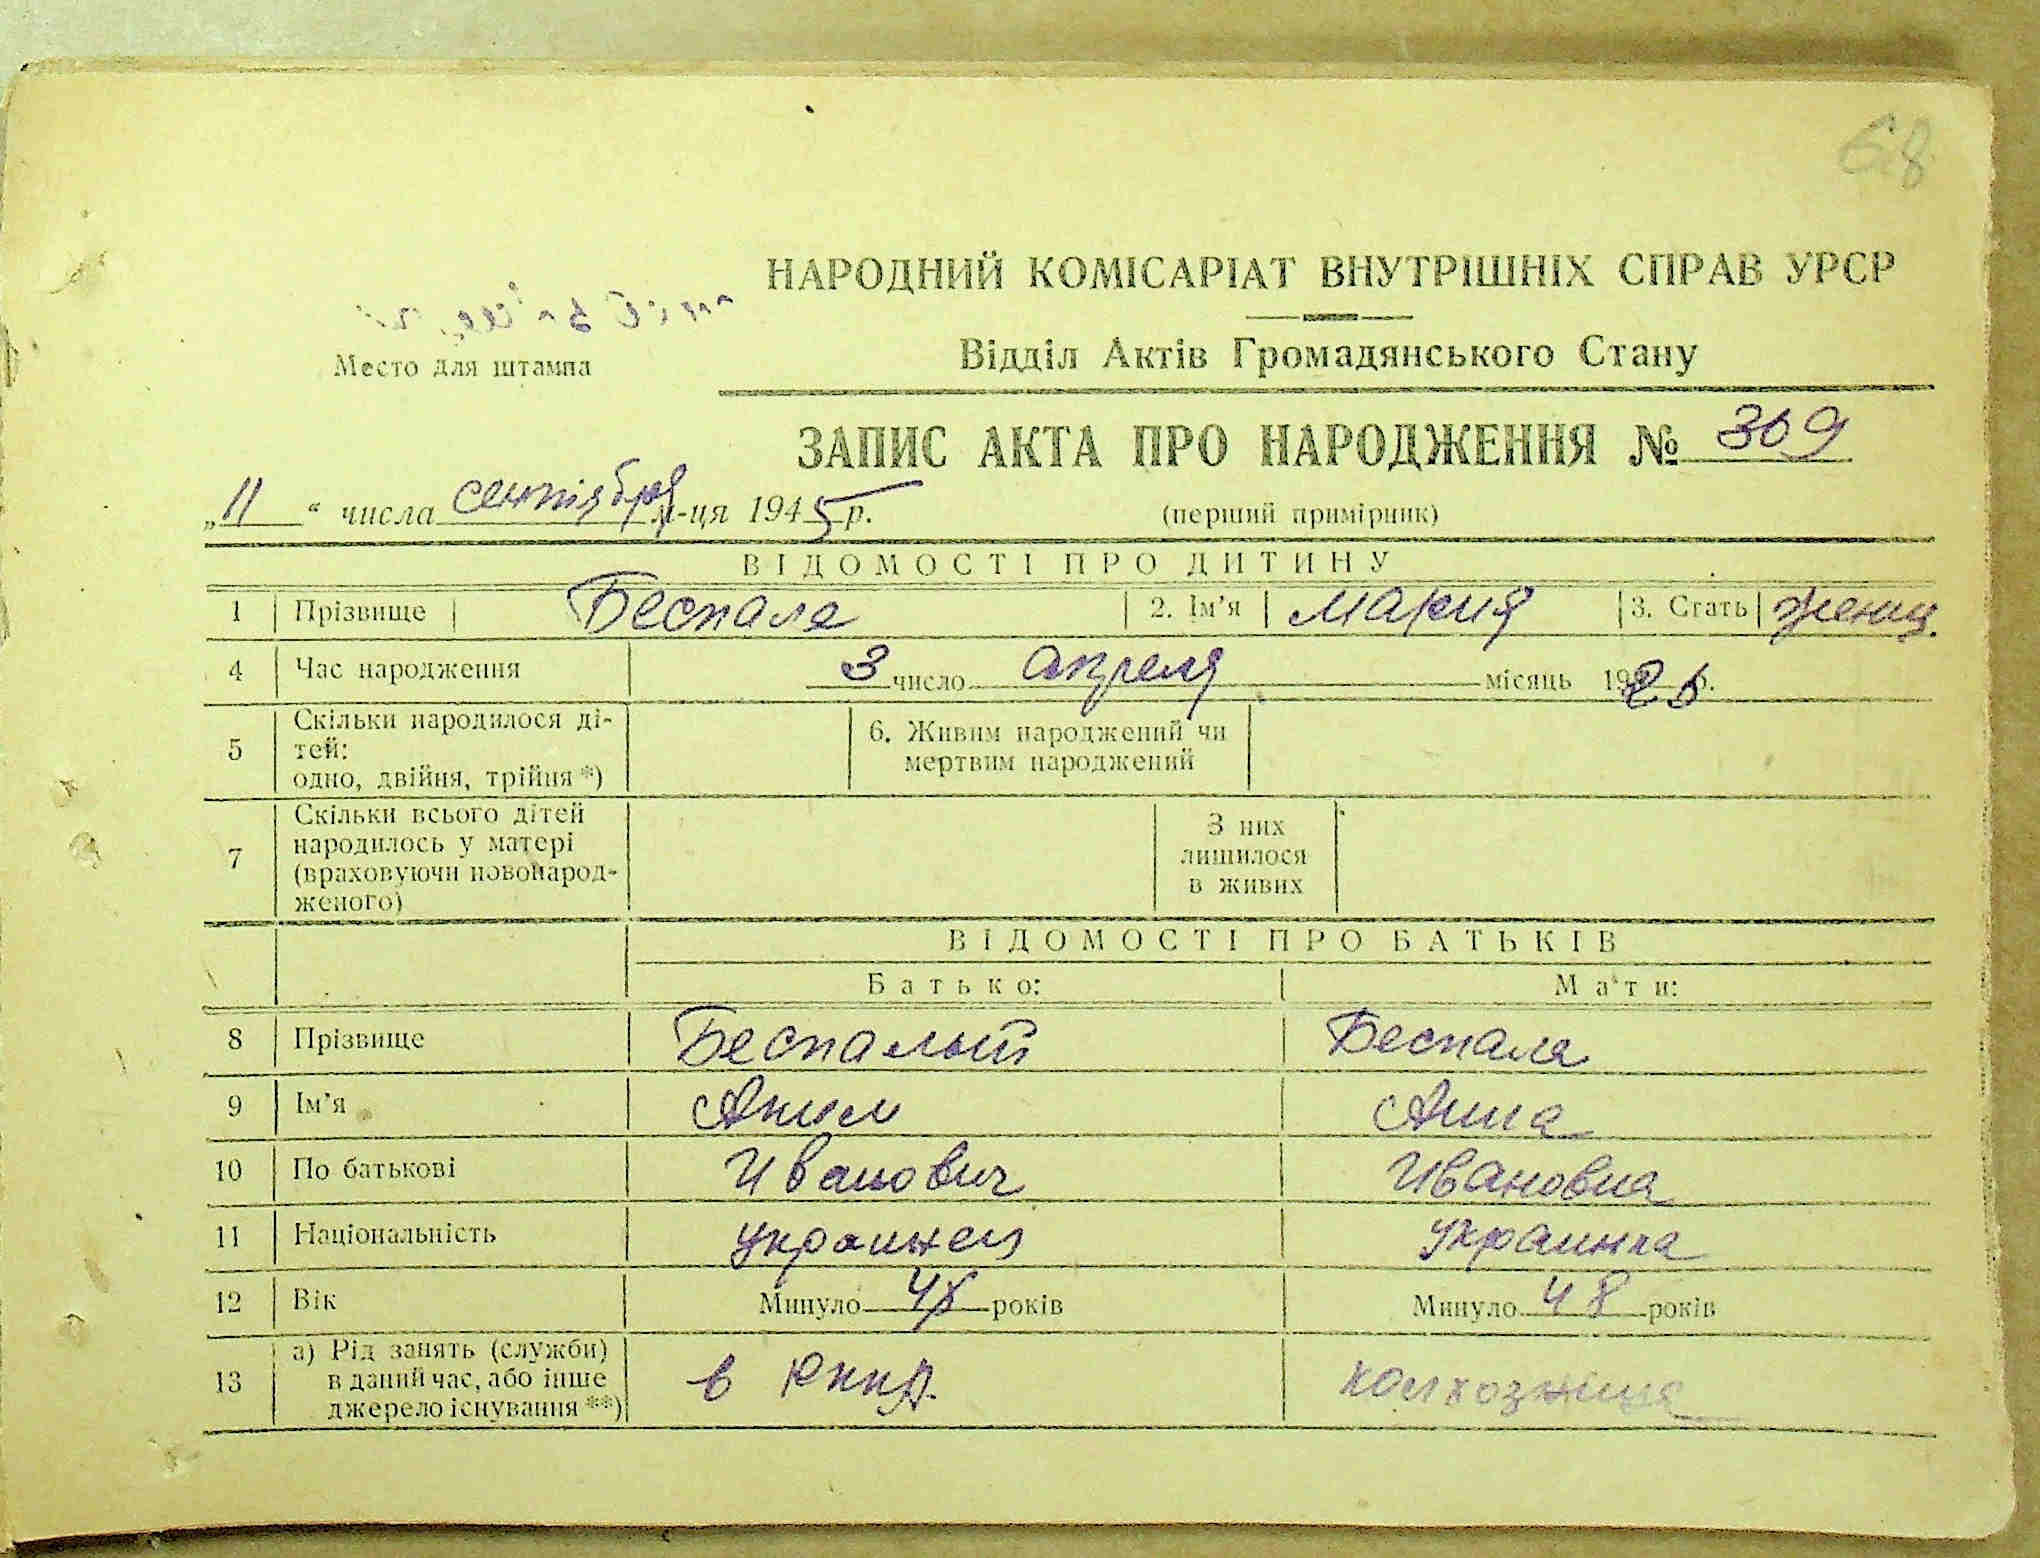 68
НАРОДНИЙ КОМІСАРІАТ ВНУТРІШНІХ СПРАВ УРСР
Место для штампа
Відділ Актів Громадянського Стану
ЗАПИС АКТА ПРО НАРОДЖЕННЯ № 309
„11“ числа сентября м-ця 1945 р. (перший примірник)
ВІДОМОСТІ ПРО ДИТИНУ
1 Прізвище Беспала 2. Ім’я Мария 3. Стать женщ.
4 Час народження 3 число апреля місяць 1926 р.
5 Скільки народилося ді-
тей:
одно, двійня, трійня *)
6. Живим народжений чи
мертвим народжений
7 Скільки всього дітей
народилось у матері
(враховуючи новонарод-
женого)
З них
лишилося
в живих
ВІДОМОСТІ ПРО БАТЬКІВ
Батько: Мати:
8 Прізвище Беспалый Беспала
9 Ім’я Аким Анна
10 По батькові Иванович Ивановна
11 Національність украинец украинка
12 Вік Минуло 48 років Минуло 48 років
13 а) Рід занять (служби)
в даний час, або інше
джерело існування **)
в РККА. колхозница